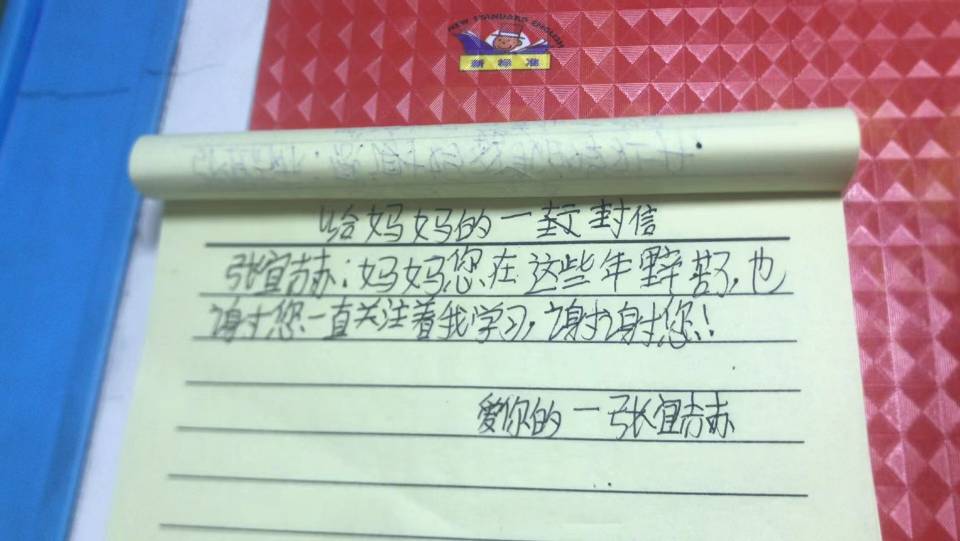 NEW STANDARD ENGLISH
新标准
给妈妈的一封封信
张宜赫:妈妈您在这些年辛苦了,也
谢您一直关注着我学习,谢谢您!
爱你的一张宜赫